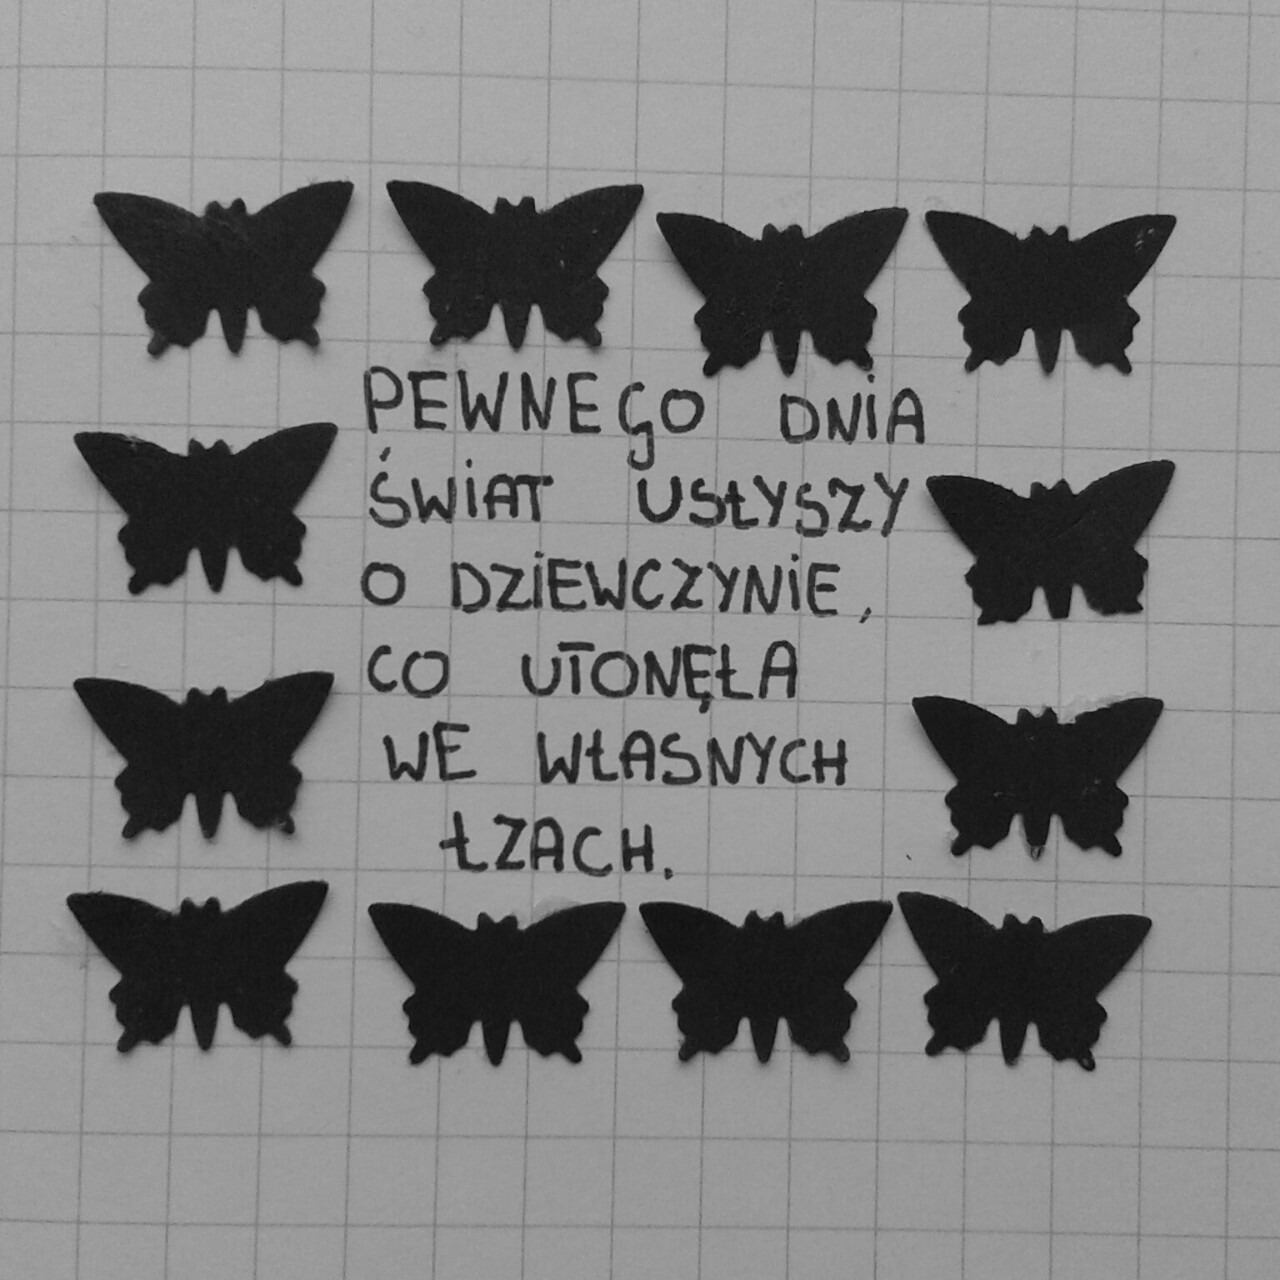 PEWNEGO DNIA
ŚWIAT USŁYSZY
O DZIEWCZYNIE,
CO UTONĘŁA
WE WŁASNYCH
ŁZACH.